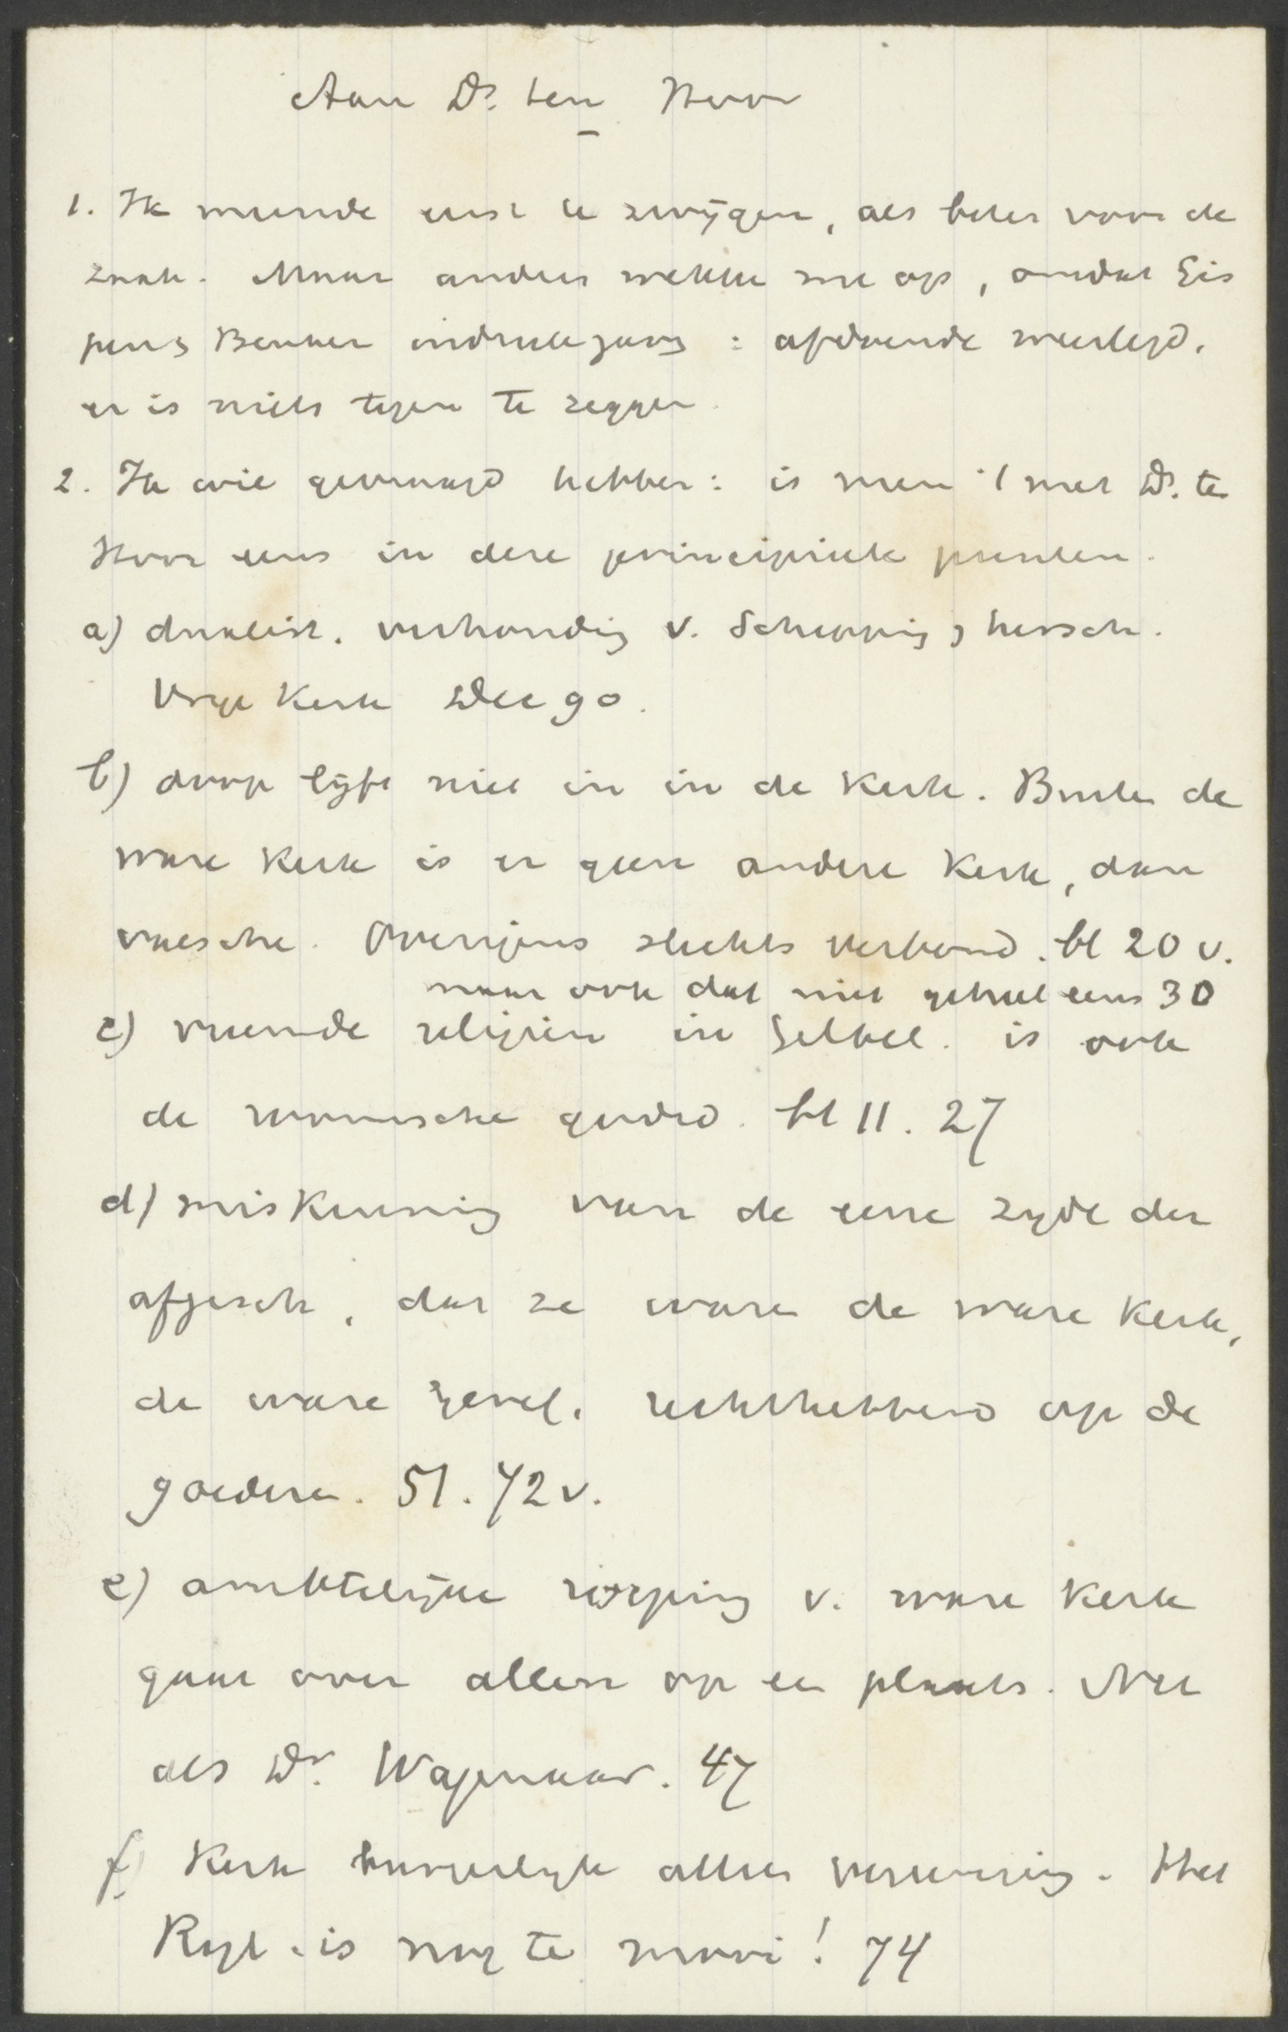 Aan Ds. ten Hoor
1. Ik meende eerst te zwijgen, als beter voor de
zaak. Maar anders wekte me op, omdat
Beuker indruk gaven : afdoende weerlegd.
er is niets tegen te zeggen
2. Ik wil gevraagd hebben : is men 't met Ds. ten
Hoor eens in deze principieele punten.
a) dualist. verhouding v. Schepping, hersch.
Vrije Kerk Dec 90.
b) doop lijft niet in in de Kerk. Buiten de
ware Kerk is er geen andere Kerk, dan
valsche. Overigens slechts verbond. bl 20 v.
maar ook dat niet geheel eens 30
c) vreemde religiën in Gelbel. is ook
de roomsche godsd. bl 11. 27
d) miskenning van de eene zyde der
afgesch., dat ze waren de ware Kerk,
de ware geref. rechthebbend op de
goederen. 51. 72 v.
e) ambtelijke roeping v. ware Kerk
gaat over allen op een plaats. Net
als Dr. Wagenaar. 47
f) Kerk burgerlijk alleen vereeniging. Het
Ryk is nog te mooi! 74